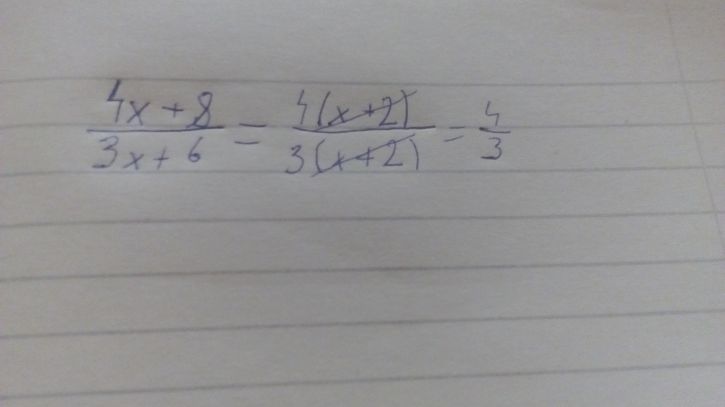 \frac{4x+8}{3x+6} = \frac{4(x+2)}{3(x+2)} = \frac{4}{3}